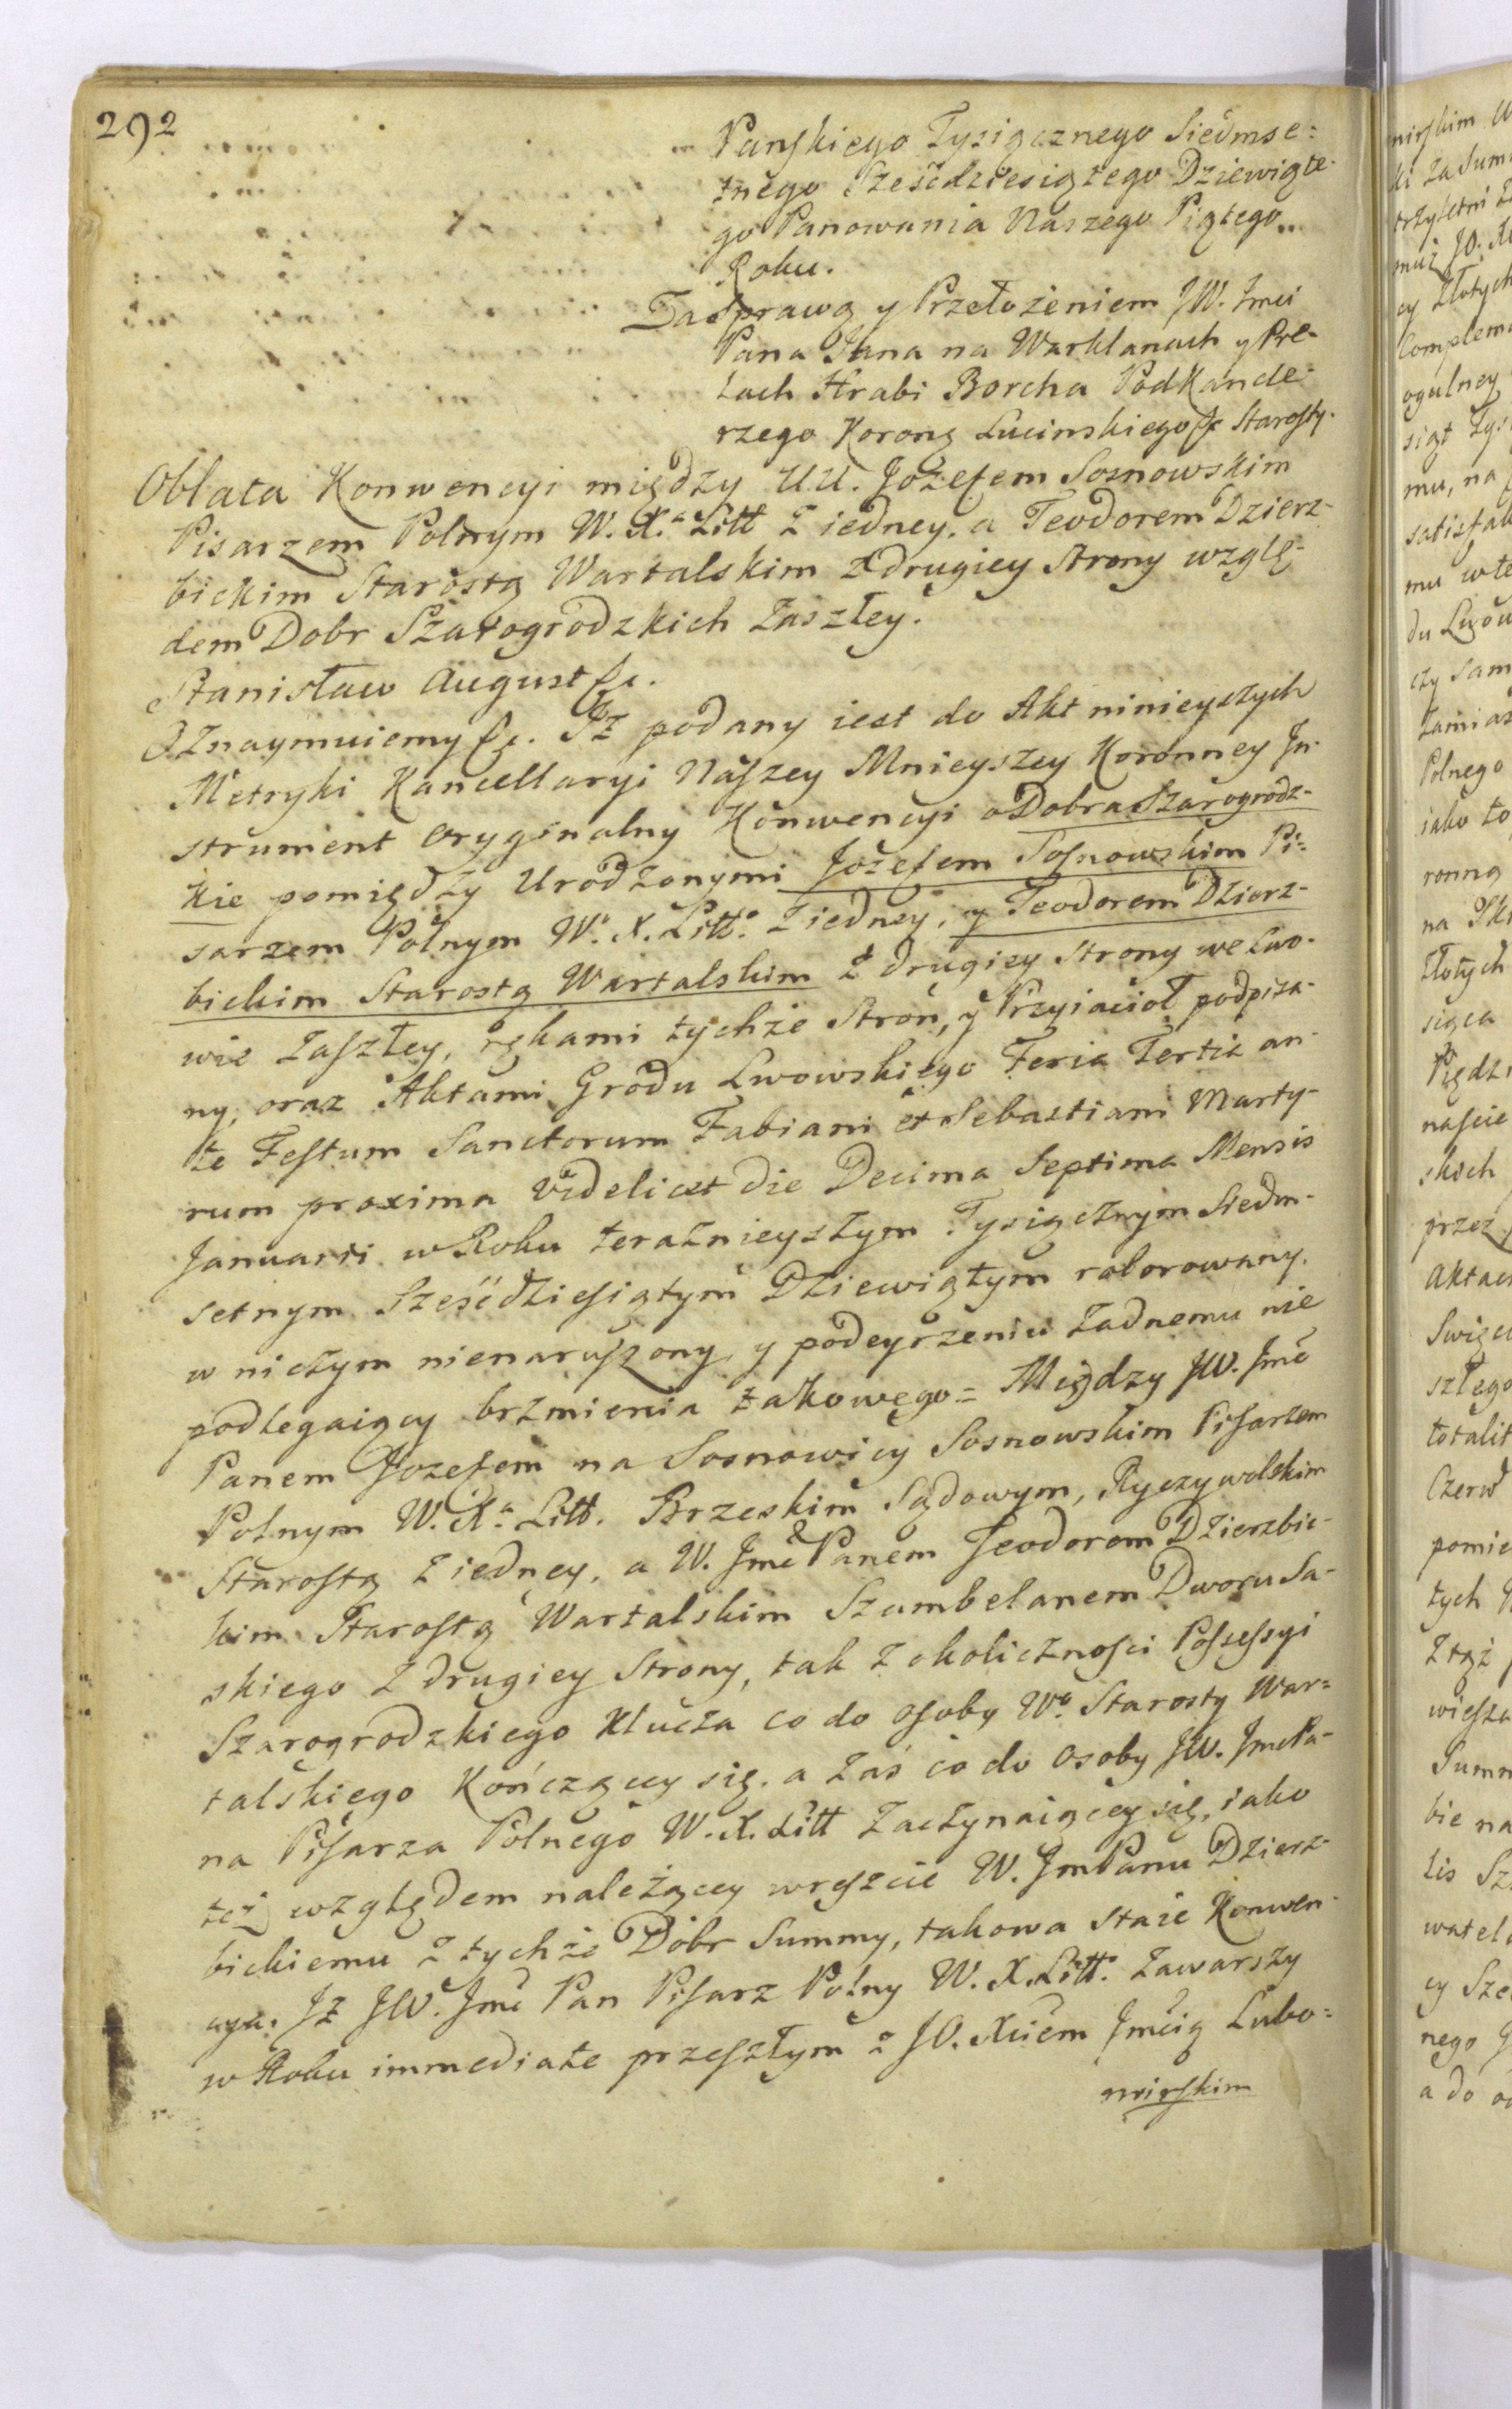 292
Panſkiego Tysiącznego Siedmse=
tnego Sześćdziesiątego Dziewiąte-
go Panowania Naszego Piątego
Roku.
Za Sprawą y Przełożeniem JW. Jmci
Pana Jana na Warklanach y Pre-
lach Hrabi Borcha PodKancle-
rzego Korong Lucinskiego &c Staroſty.
Oblata Konwencyi między UU. Jozefem Sosnowskim
Pisarzem Polnym W. X.a Litt z iedney, a Teodorem Dzierz-
bickim Starostą Wartalskim z drugiey strony wzglę-
dem Dobr Szarogrodzkich zaszłey.
Stanisław August &c.
Oznaymuiemy &c. Iż podany iest do Akt ninieyszych
Metryki Kancellaryi Naſzey Mnieyszey Koronney In-
strument oryginalny Konwencyi o Dobra Szarogrodz-
kie pomiędzy Urodzonymi Jozefem Soſnowskim Pi=
sarzem Polnym W. X. Litt. z iedney, y Teodorem Dzierz-
bickim Starostą Wartalskim z drugiey Strony we Lwo-
wie zaſzłey, rękami tychże Stron, y Przyiacioł podpisa-
ny, oraz Aktami Grodu Lwowskiego Feria Tertia an-
te Feſtum Sanctorum Fabiani et Sebastiani Marty-
rum proxima videlicet die Decima Septima Mensis
Januarii w Roku teraznieyszym Tysiącznym Siedm-
setnym Sześćdzieſiątym Dziewiątym roborowany,
w niczym nienaruſzony, y podeyrzeniu żadnemu nie
podlegaiący brzmienia takowego = Między JW. Jmć
Panem Jozefem na Sosnowicy Sosnowskim Piſarzem
Polnym W. X.a Litt. Brzeskim Sądowym, Ryczywolskim
Staroſtą z iedney, a W. Jmć Panem Teodorem Dzierzbic-
kim Staroſtą Wartalskim Szambelanem Dworu Sa-
skiego z drugiey Strony, tak z okolicznoſci Poſseſsyi
Szarogrodzkiego Klucza co do oſoby Wo Starosty War=
talskiego Kończącey się, a zaś co do Osoby JW. Jmć Pa-
na Piſarza Polnego W. X. Litt zaczynaiącey się, iako
też względem należącey wreſzcie W. Jm Panu Dzierz-
bickiemu z tychże Dobr Summy, takowa staie Konwen-
cya. Iż JW. Jmć Pan Piſarz Polny W. X. Litt. zawarszy
w Roku immediate przeſzłym z JO. Xciem Jmcią Lubo=
mirſkim